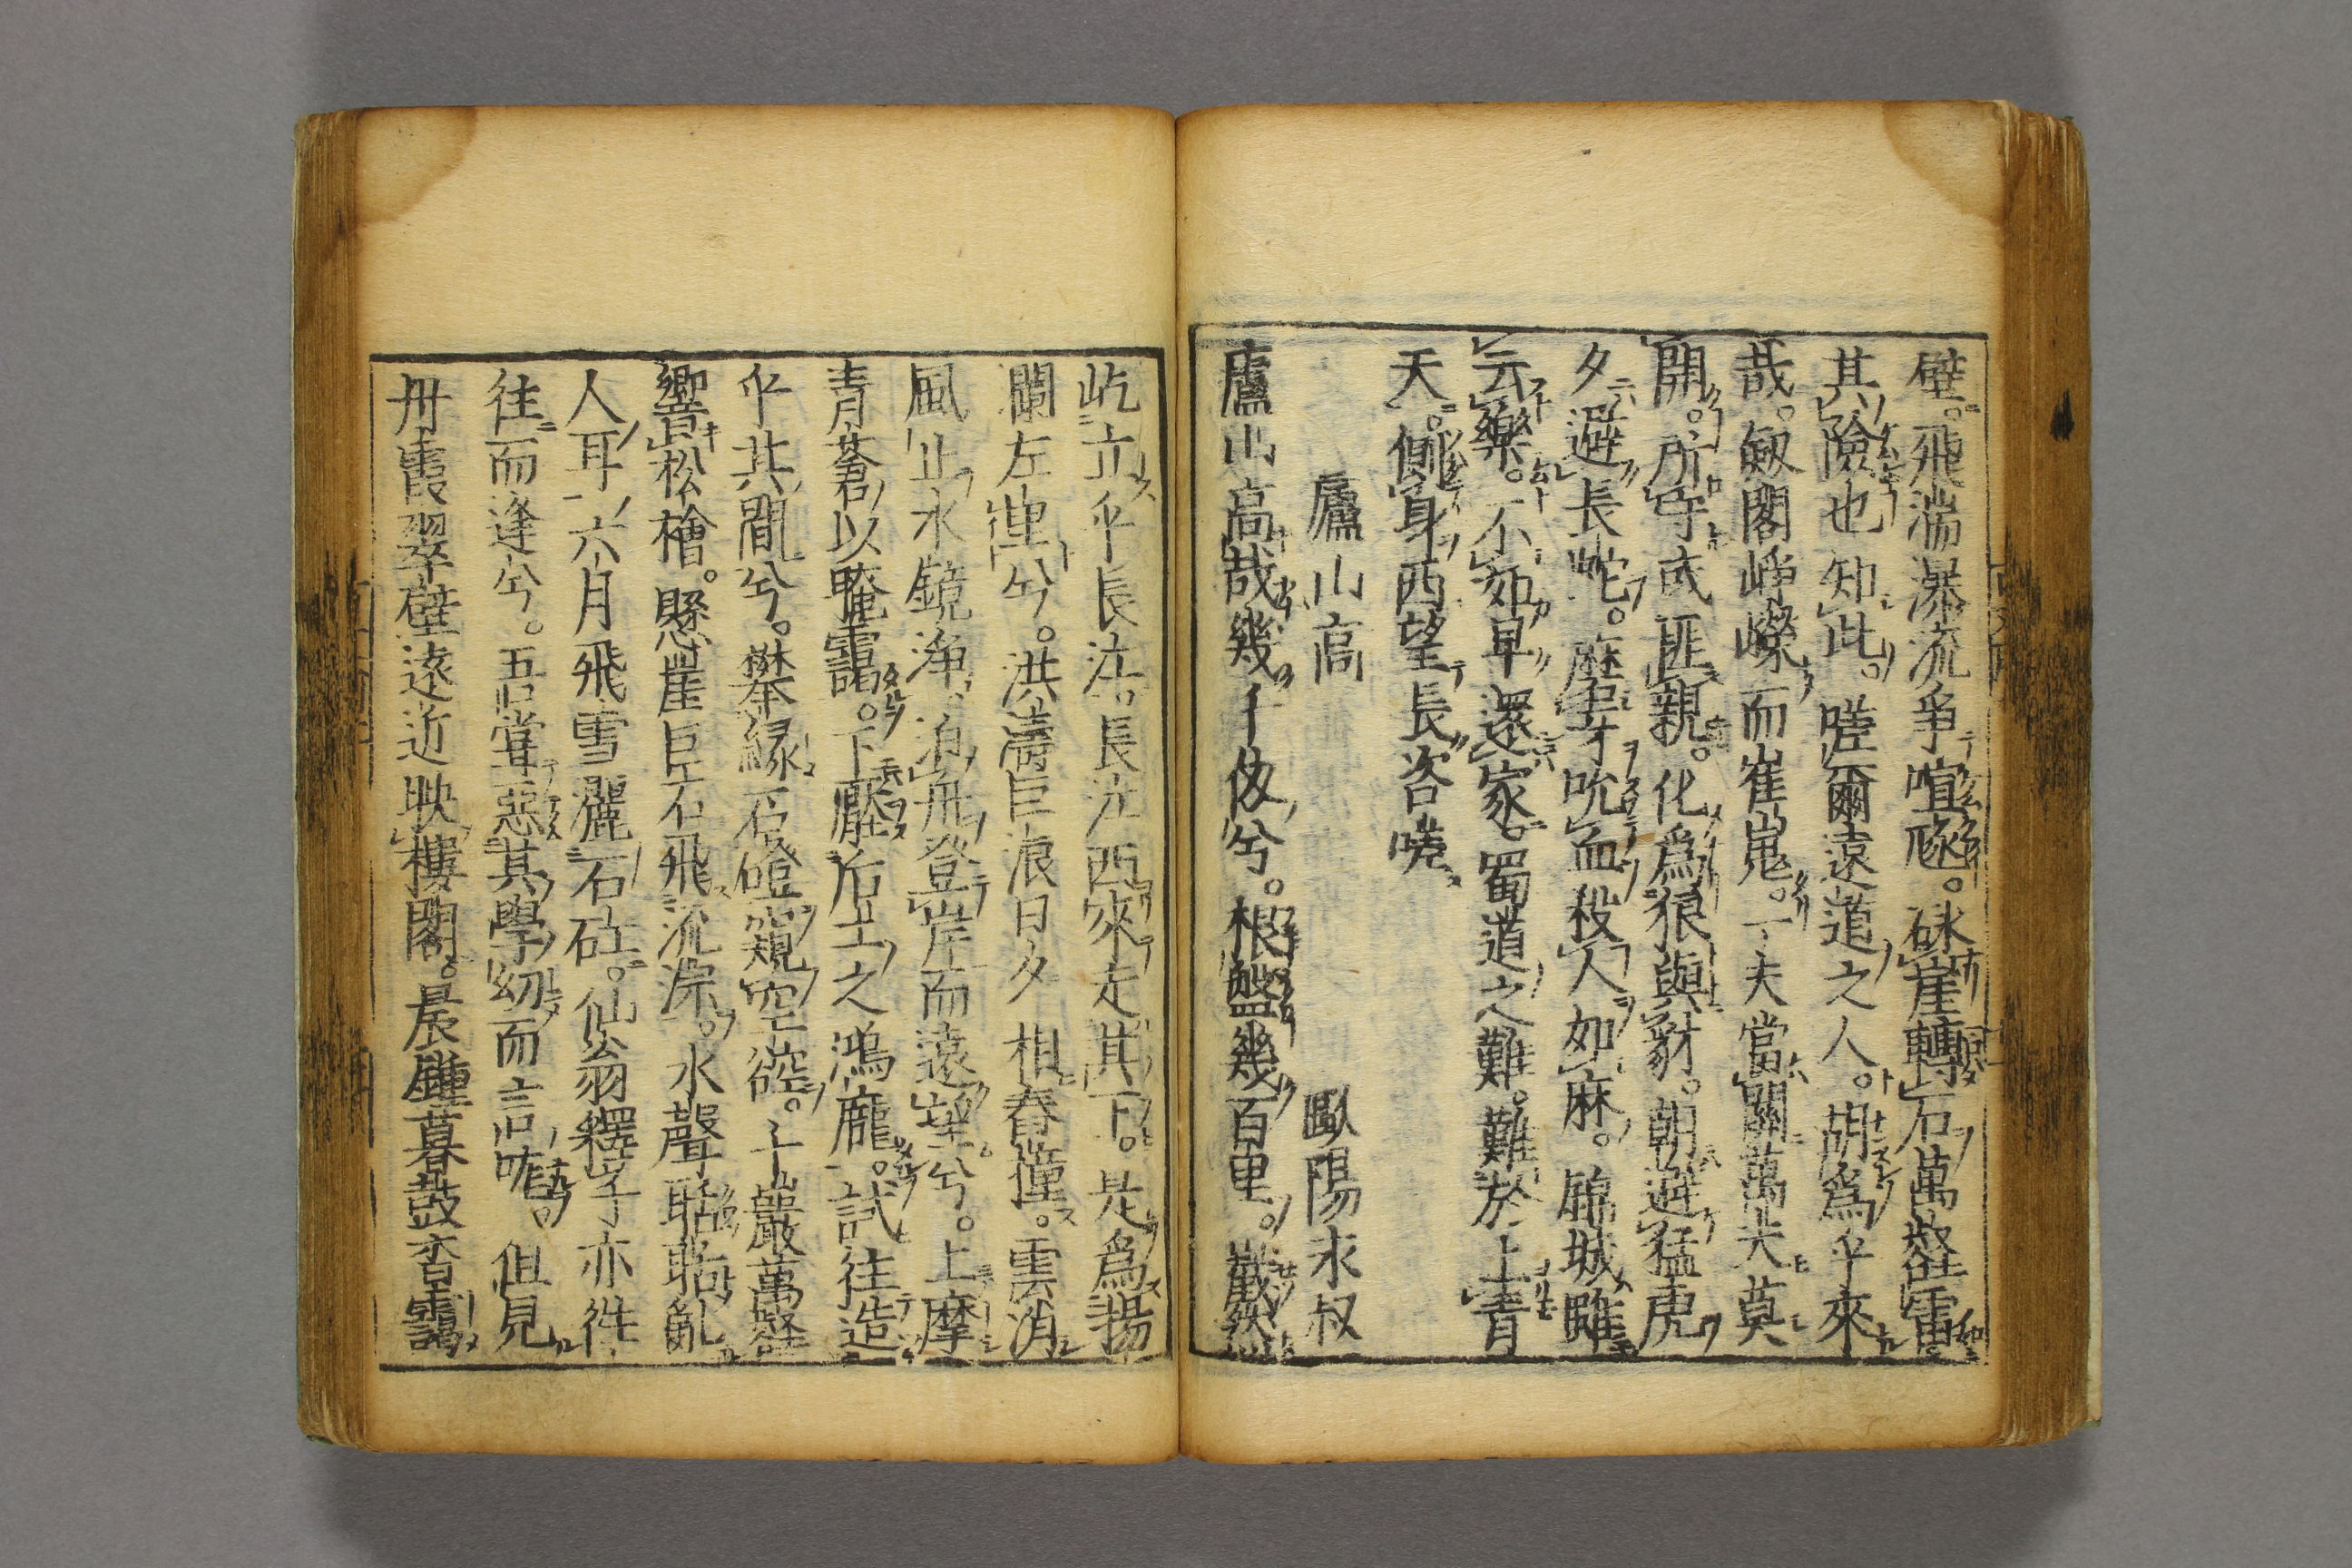 壁。飛湍瀑流爭喧豗。砯崖轉石萬壑雷
其險也如此。嗟爾遠道之人。胡爲乎來
哉。劔閣崢嶸而崔嵬。一夫當關萬夫莫
開。所守或匪親。化爲狼與豺。朝避猛虎
夕避長蛇。磨牙吮血殺人如麻。錦城雖
云樂。不如早還家。蜀道之難。難於上青
天。側身西望長咨嗟
廬山高
歐陽永叔
廬山高哉幾千仭兮。根盤幾百里。巀然
屹立乎長江。長江西來走其下。是爲揚
瀾左里兮。洪濤巨浪日夕相舂撞。雲消
風止水鏡淨、泊舟登岸而遠望兮。上摩
青蒼以晻靄。下壓后土之鴻龐。試往造
乎其間兮。攀緣石磴窺空谾。千巖萬壑
響松檜。懸崖巨石飛流淙。水聲聒聒亂
人耳、六月飛雪灑石矼。仙翁釋子亦徃
往而逢兮。吾嘗惡其學幻而言哤。但見
丹霞翠壁遠近映樓閣。晨鐘暮鼓杳靄